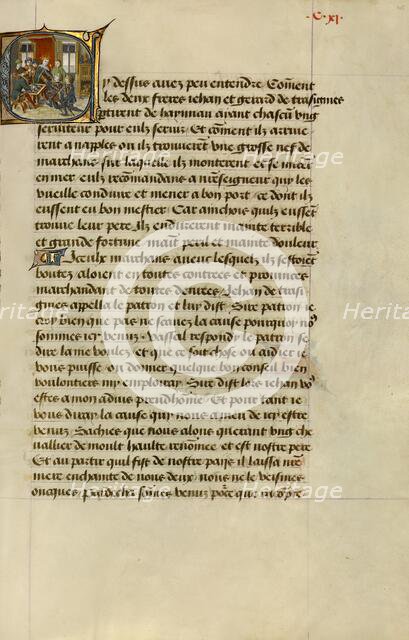 C. xi.
Cy dessus avez peu entendre. Comment
les deux freres iehan et gerard de trasignies
partirent de haynnau ayant chascun ung
serviteur pour eulz servir Et coment ilz arrive
rent a napples ou ilz trouverent une grosse nef de
marchans sur laquelle ilz monterent et se mirent
en mer eulz recomandans a nre seigneur quy les
vueille conduire et mener a bon port ce dont ilz
eussent eu bon mestier Car aincois quilz eussent
trouve leur pere Ilz endurerent mainte terrible
et grande fortune maint peril et mainte douleur
Iceulx marchans avec lesquelz ilz sestoient
boutez aloient en toutes contrees et provinces
marchandant de toutes denrees Iehan de trasi
gnies appella le patron et luy dist Sire patron Ie
croy bien que pas ne scavez la cause pourquoy no9
sommes icy venuz Vassal respondy le patron
dire la me voulez et que ce soit chose ou aidier Ie
vous puisse ou donner quelque bon conseil bien
voulontiers my emploiray Sire dist lors iehan vo9
estes a mon advis preudhomme Et pour tant Ie
vous diray la cause quy nous a meu de icy estre
venuz Sachies que nous alons querant ung che
vallier de moult haulte renomee et est nostre pere
Et au partir quil fist de nostre pays il laissa nre
mere enchainte de nous deux nous ne le veismes
oncques
Heritage
Heritage
Heritage
Heritage
Heritage
Heritage